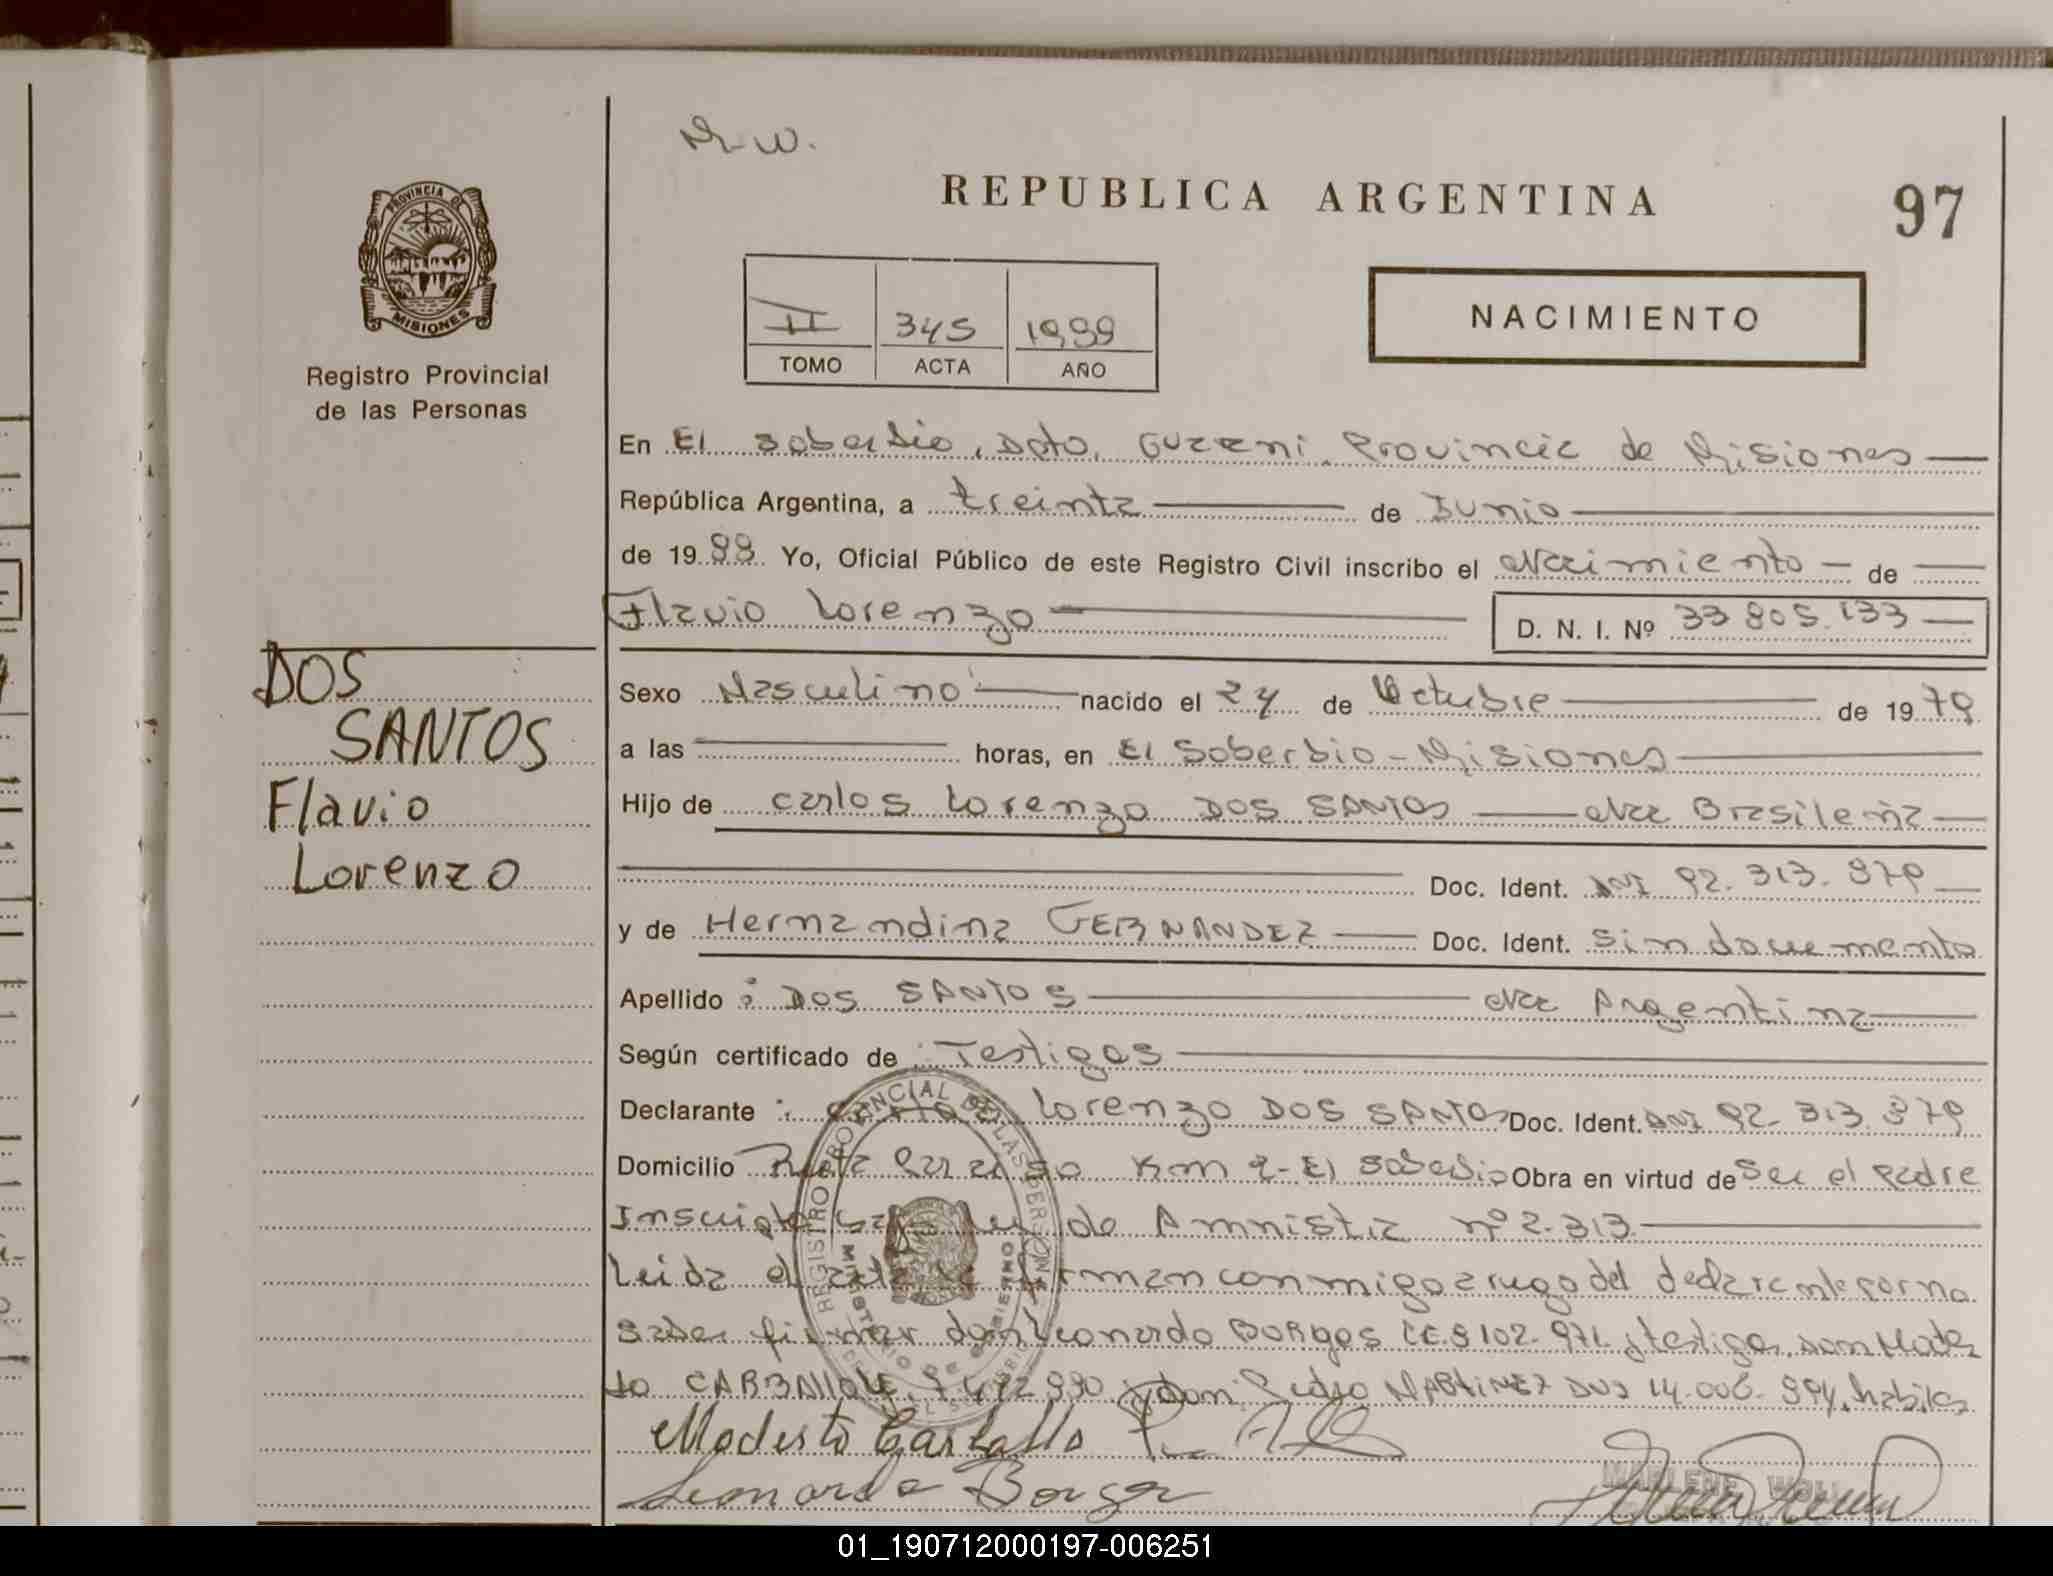 M.W.
REPUBLICA ARGENTINA
97
PROVINCIA DE
MISIONES
Registro Provincial
de las Personas
II 345 1999
TOMO ACTA AÑO
NACIMIENTO
En El Soberbio, Dpto. Guarani Provincia de Misiones
República Argentina, a treinta de Junio
de 1999 Yo, Oficial Público de este Registro Civil inscribo el Nacimiento de
Flavio Lorenzo D. N. I. Nº 33 805.133
DOS
SANTOS
Flavio
Lorenzo
Sexo Masculino nacido el 24 de Octubre de 1979
a las horas, en El Soberbio - Misiones
Hijo de Carlos Lorenzo DOS SANTOS Nac Brasileña
Doc. Ident. DNI 92.313.879
y de Hernandina FERNANDEZ Doc. Ident. sin documento
Apellido : DOS SANTOS Nac Argentina
Según certificado de : Testigos
Declarante : Carlos Lorenzo DOS SANTOS Doc. Ident. DNI 92.313.879
Domicilio Ruta Km 2 - El Soberbio Obra en virtud de ser el padre
Inscripto Ley de Amnistia nº 2.313
Leida el acta firman conmigo a ruego del declarante por no
saber firmar don Leonardo BORges C.I. 9102.971 y testigos don Modes
to CARBALLO y don Pedro MARTINEZ DNI 14.006.994, habiles
Modesto Carballo
Leonardo Borges
MARLENE
REGISTRO PROVINCIAL DE LAS PERSONAS
MINISTERIO DE GOBIERNO
01_190712000197-006251